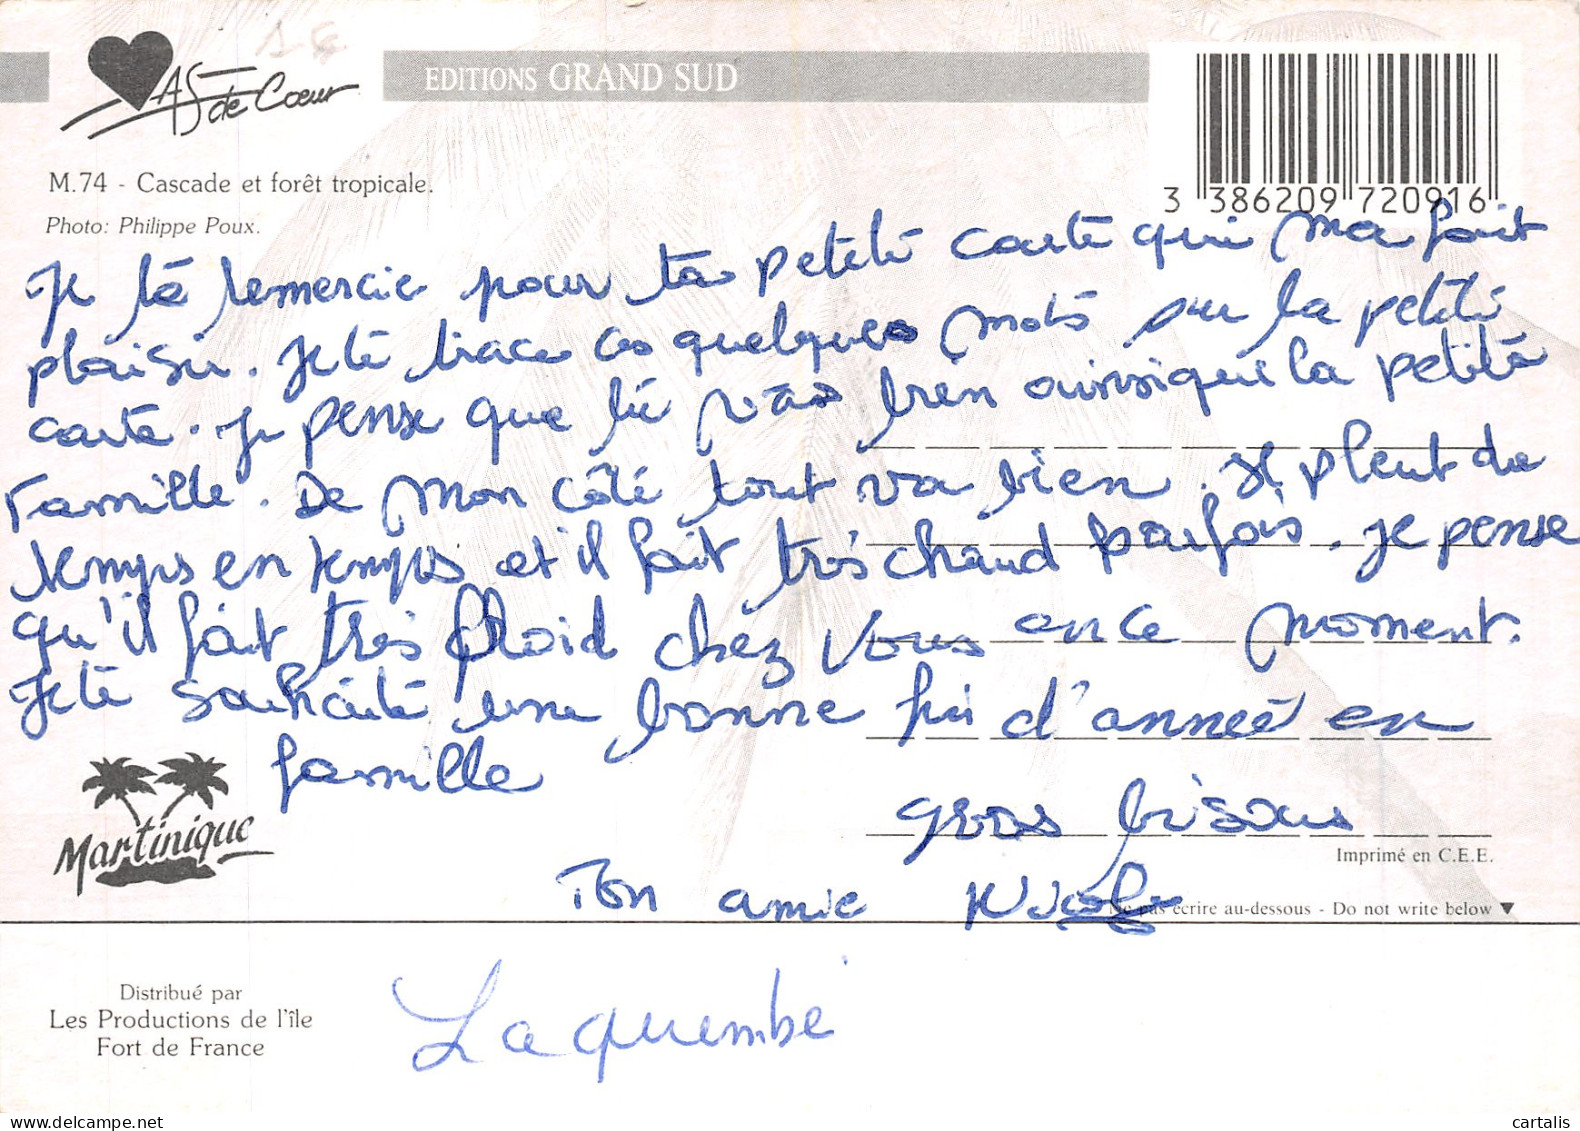 1€
AS de Cœur
EDITIONS GRAND SUD
M.74 - Cascade et forêt tropicale.
Photo: Philippe Poux.
3 386209 720916
Je te remercie pour ta petite carte qui ma fait
plaisir. Je te trace ces quelques mots sur la petite
carte. Je pense que tu vas bien ainsi que la petite
famille. De mon côté tout va bien. Il pleut de
temps en temps et il fait très chaud parfois. Je pense
qu'il fait très froid chez vous en ce moment.
Je te souhaite une bonne fin d'année en
famille
gros bisous
Ton amie Nicole
Martinique
Imprimé en C.E.E.
Ne pas écrire au-dessous - Do not write below ▼
Distribué par
Les Productions de l'île
Fort de France
Laquembé
cartalis